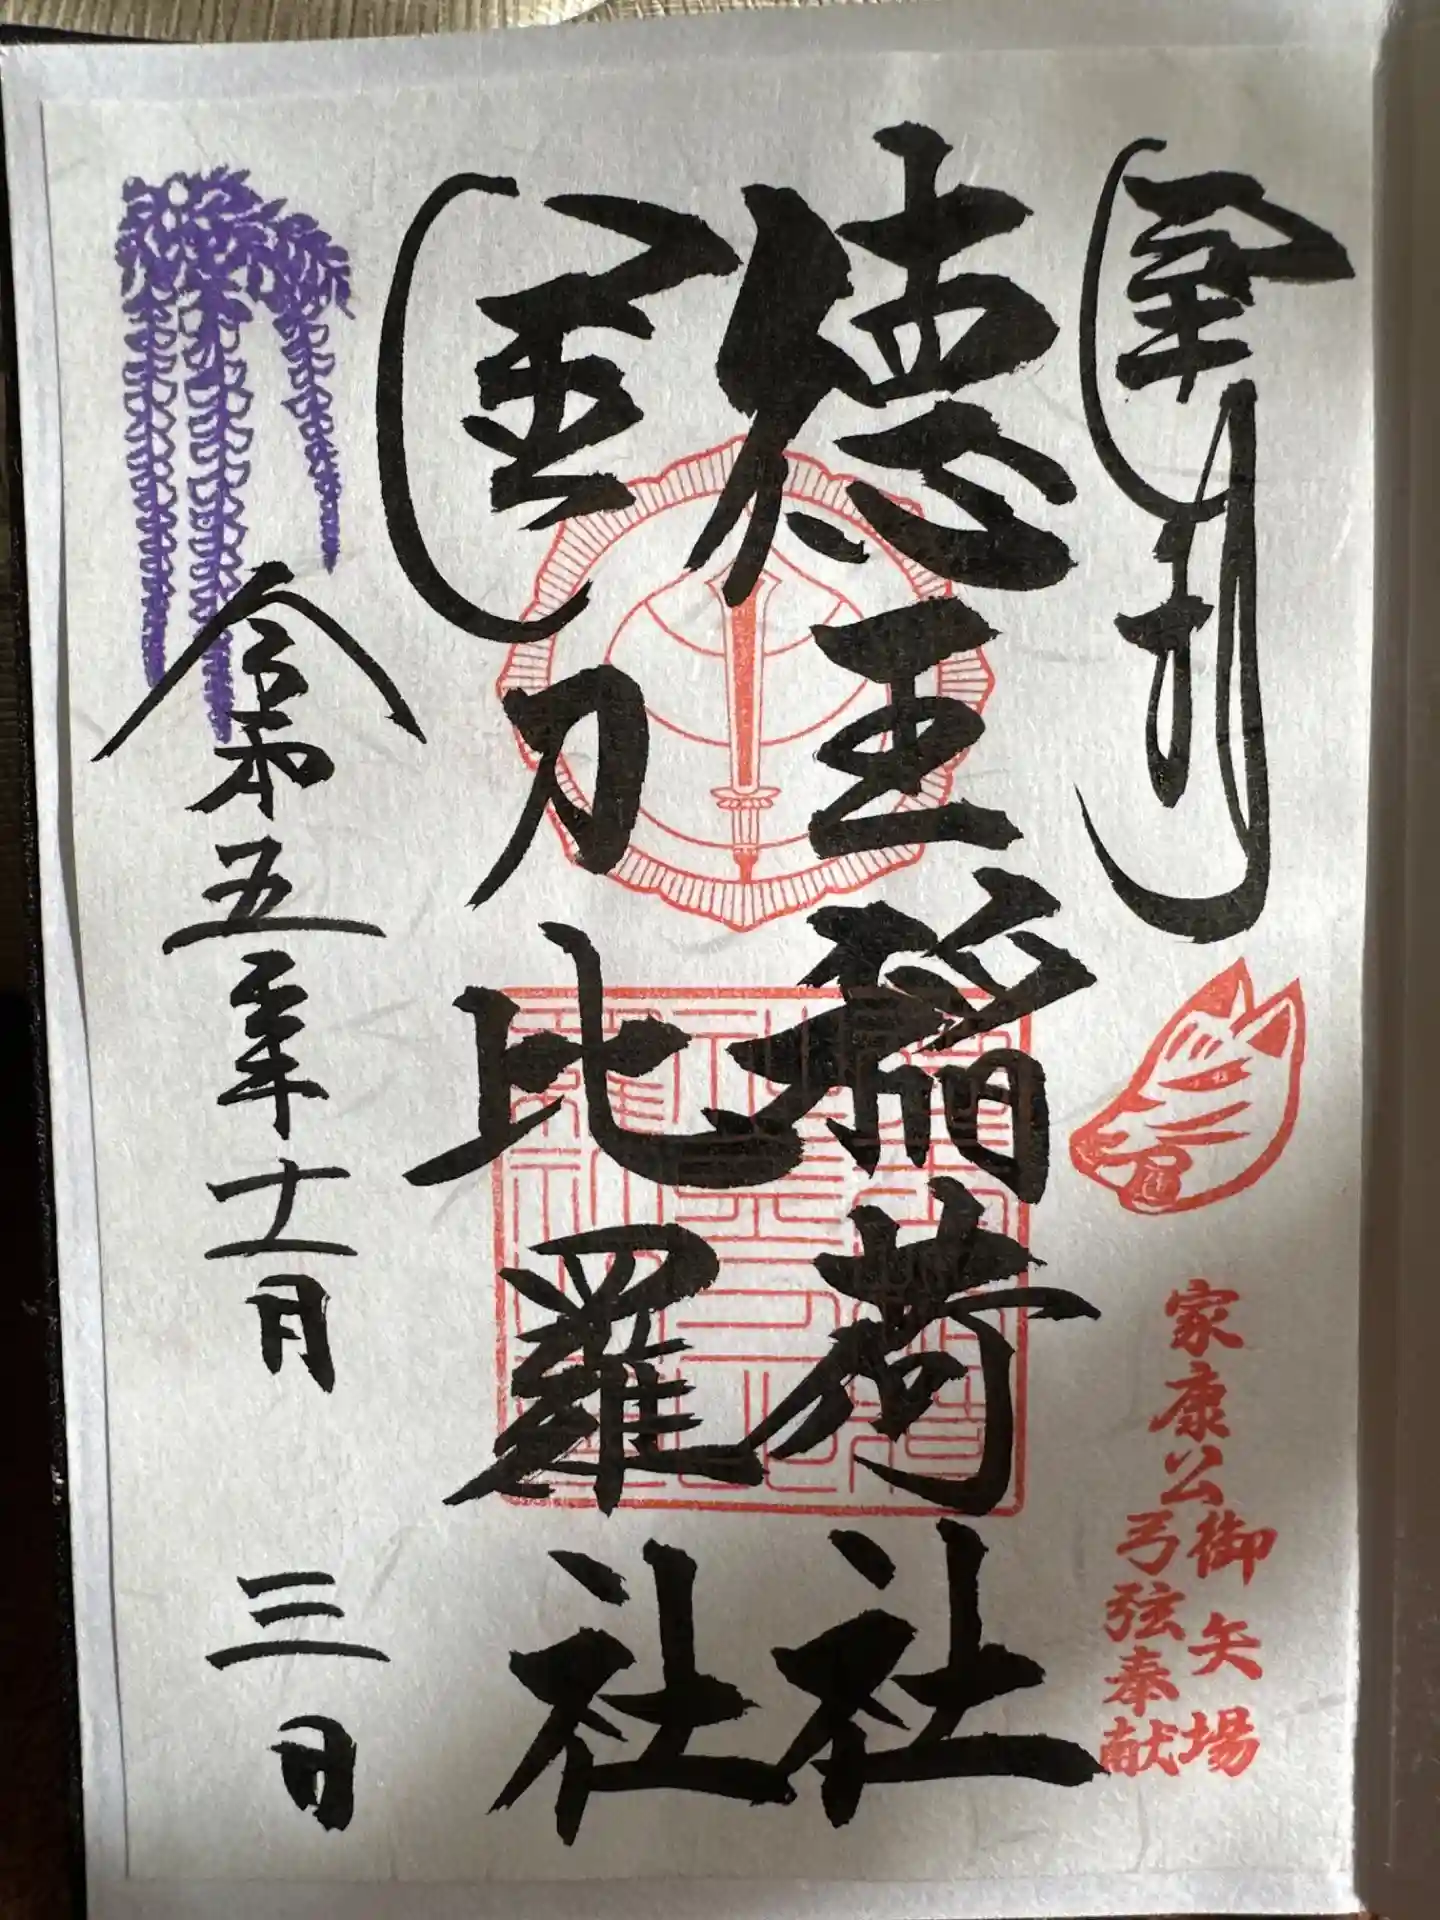 奉拝
家康公御矢場
弓弦奉献
徳王稲荷社
金刀比羅社
令和五年十一月三日